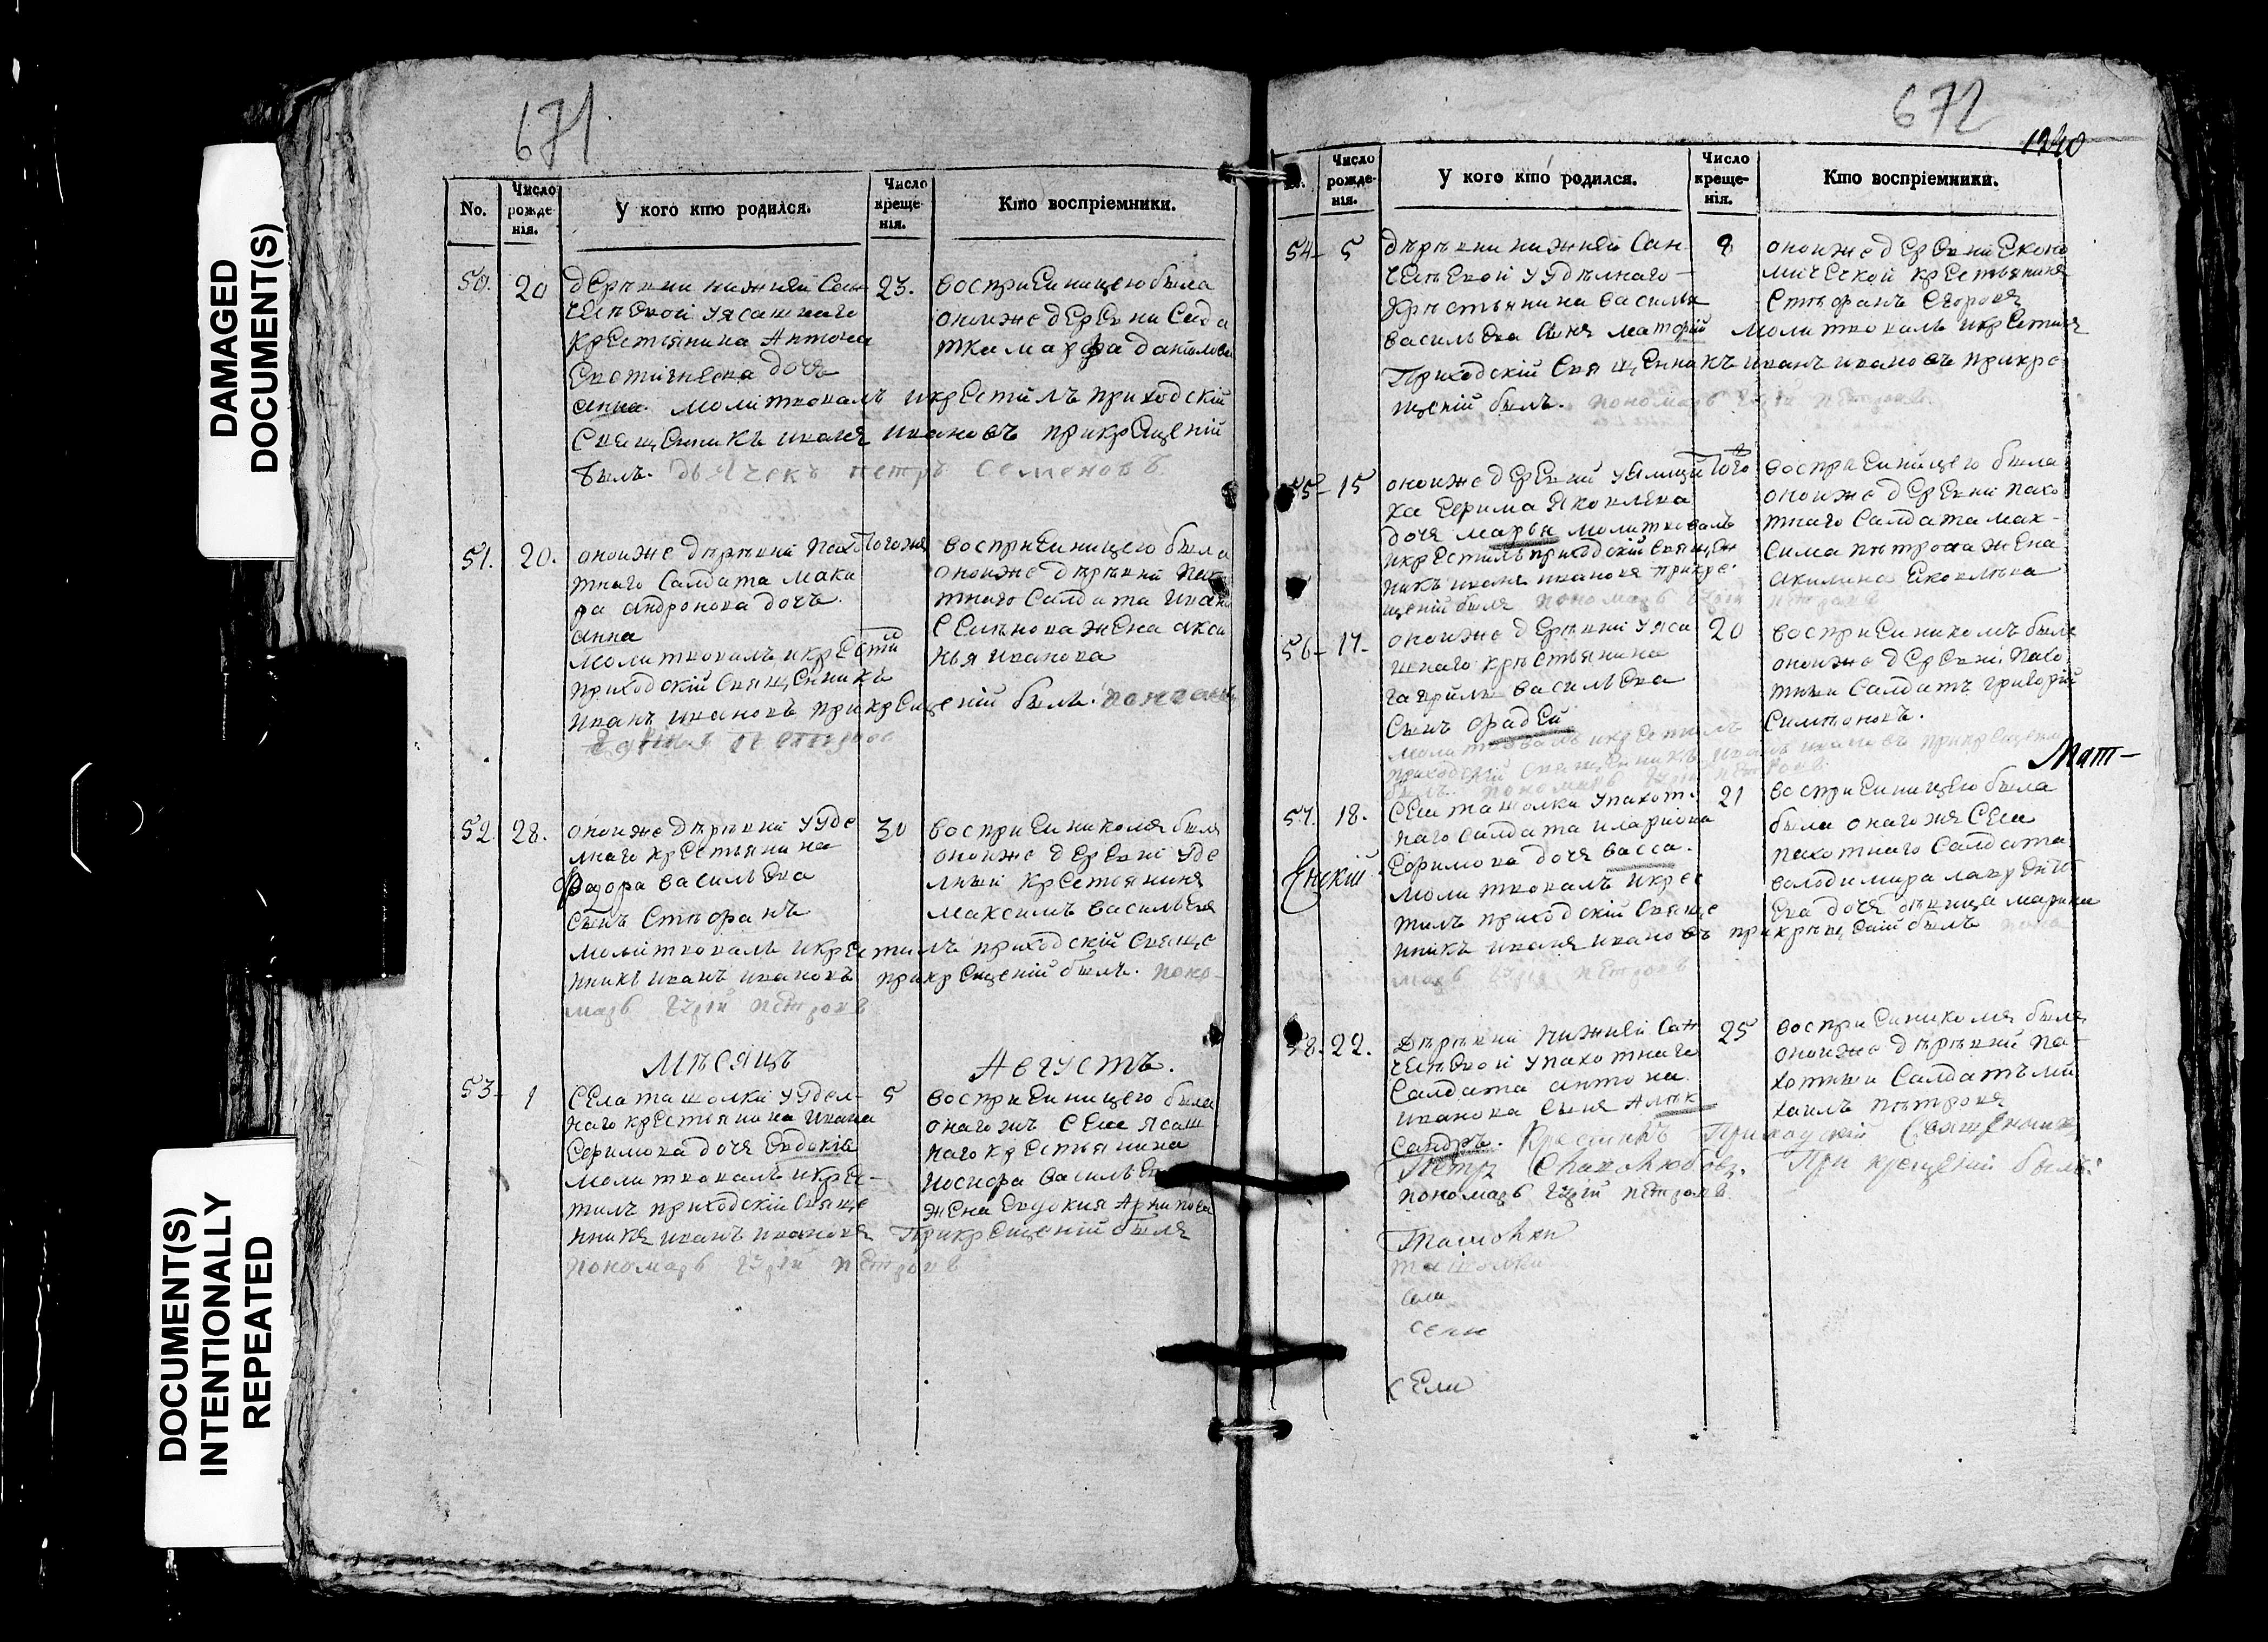 DAMAGED
DOCUMENT(S)
DOCUMENT(S)
INTENTIONALLY
REPEATED
671
No.
Число рожде-нія.
У кого кто родился.
Число креще-нія.
Кто воспріемники.
50. 20 23.
деревни нижней Сан
крестіянина Антона
дочь
анна. молитвовалъ и крестилъ приходскій
Священникъ иванъ ивановъ прикрещеній
былъ. дьячекъ петръ семеновъ
восприемницею была
оноиже деревни Солда
тка марфа данилова
51. 20. Тогожъ
оноиже деревни пахо
тнаго Салдата мака
ра андронова дочь
анна
молитвовалъ и крести
приходскій Священникъ
иванъ ивановъ прикрещеній былъ. пономарь
восприемницею была
оноиже деревни пахо
тнаго Салдата ивана
Семенова жена акси
нья иванова
52. 28. 30
оноиже деревни у уде
лнаго крестьянина
Федора васильева
Сынъ Стефанъ
молитвовалъ и крестилъ приходскій Свяще
нникъ иванъ ивановъ прикрещеній былъ. поно-
марь Гурій петровъ
восприемникомъ былъ
оноиже деревни уде
лный крестіянинъ
максимъ васильевъ
Мѣсяцъ Августъ.
53- 1 5
Села ташолки у удел-
наго крестьянина ивана
Ефимова дочь Евдокіа
молитвовалъ и крес-
тилъ приходскій Свяще
нникъ иванъ ивановъ Прикрещеній былъ
пономарь Гурій петровъ
восприемницею была
онагожъ Села ясаш
наго крестьянина
иосифа васильева
жена Евдокия Архипова
672
1240
Число рожде-нія.
У кого кто родился.
Число креще-нія.
Кто воспріемники.
54- 5 8
деревни нижней Сан
у уделнаго
крестьянина василья
васильева Сынъ
молитвовалъ и крестилъ
Приходскій Священникъ иванъ ивановъ прикре
щеній былъ. пономарь Гурій петровъ
оноиже деревни Еконо
мической крестьянинъ
Стефанъ Егоровъ
55- 15 Того
оноиже деревни у ямщи
ка Ефима Яковлева
дочь марья молитвовалъ
и крестилъ приходскій Священ
никъ иванъ ивановъ прикре
щеній былъ пономарь Гурій петровъ
восприемницею была
оноиже деревни пахо
тнаго Салдата мак-
сима петрова жена
акилина Яковлева
56- 17- 20
оноиже деревни у яса
шнаго крестьянина
гаврилы васильева
Сынъ фадей
молитвовалъ и крестилъ
приходскій Священникъ иванъ ивановъ прикрещеніи
былъ. пономарь Гурій петровъ.
восприемникомъ былъ
оноиже деревни пахо
тный Салдатъ григорій
Симоновъ.
Мат-
57. 18. 21
Села ташолки у пахот-
наго Салдата илариона
Ефимова дочь васса.
молитвовалъ и крес
тилъ приходскій Свяще
нникъ иванъ ивановъ прикрещеній былъ поно
марь Гурій петровъ
восприемницею была
была онагожъ Села
пахотнаго Салдата
володимира лавренть
ева дочь девица марина
58. 22. 25
Деревни Нижней Сан
у пахотнаго
Салдата антона
иванова Сынъ Алек
сандръ. Крестилъ Приходскій Священникъ
Петръ При крещеніи былъ
пономарь Гурій петровъ
восприемникомъ былъ
оноиже деревни па-
хотный Салдатъ ми
хаилъ петровъ
Ташолки
ташолки
села
Сели